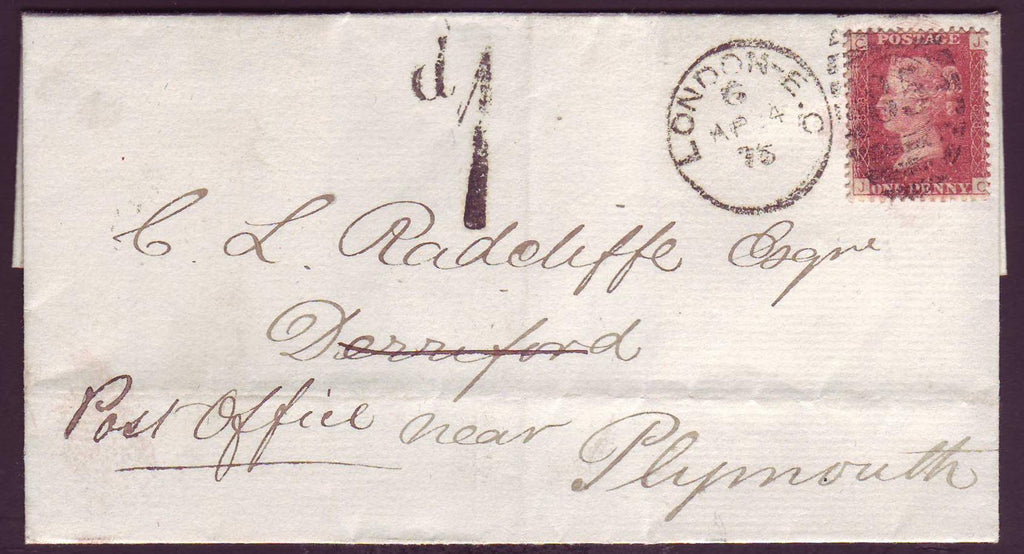 d1
LONDON-E.C
G
AP 4
75
C J
POSTAGE
J C
ONE PENNY
C L. Radcliffe Esqre
Derriford
Post Office near
Plymouth